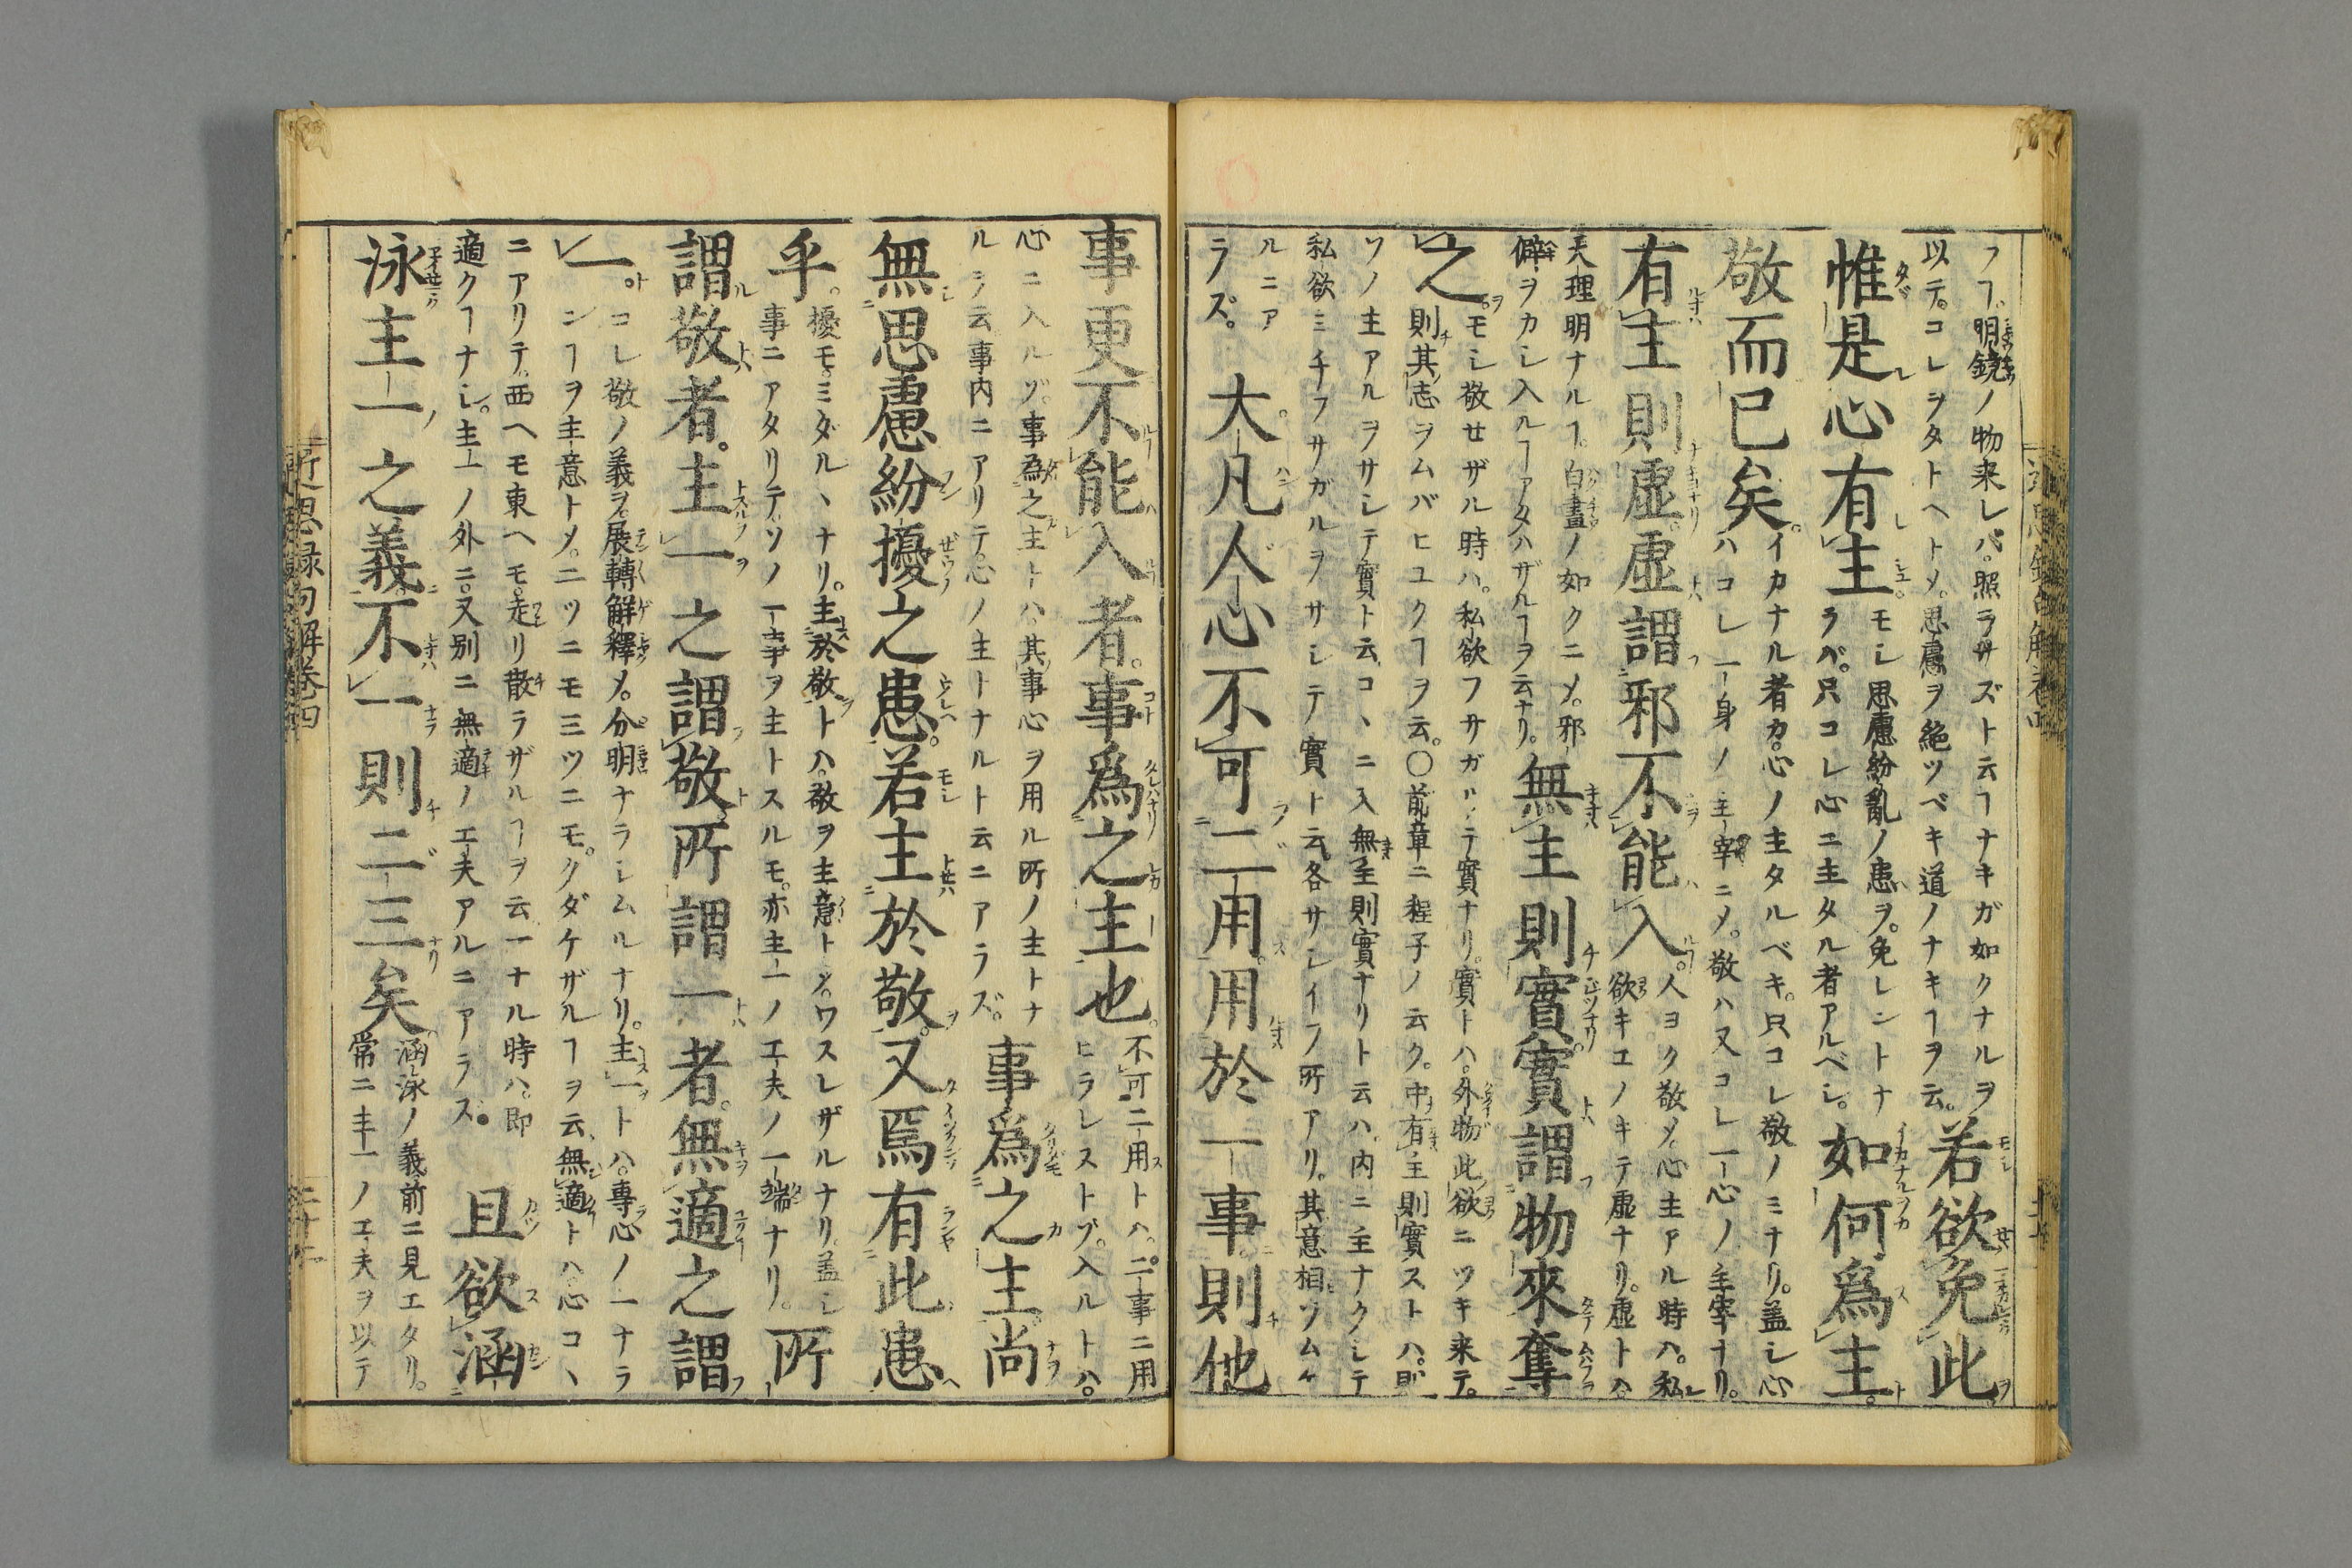 フヿ。明鏡ノ物来レバ。照ラサズト云ヿナキガ如クナルヲ
以テ。コレヲタトヘトメ。思慮ヲ絶ツベキ道ノナキヿヲ云。若欲免此
惟是心有主。モシ思慮紛亂ノ患ヲ。免レントナ
ラバ。只コレ心ニ主タル者アルベシ。如何爲主。
敬而已矣。イカナル者カ。心ノ主タルベキ。只コレ敬ノミナリ。盖シ心
ハコレ一身ノ主宰ニメ。敬ハ又コレ一心ノ主宰ナリ。
有主則虛。虛謂邪不能入。人ヨク敬メ。心主アル時ハ。私
欲キエノキテ虚ナリ。虚トハ
天理明ナルヿ。白晝ノ如クニメ。邪
僻ヲカシ入ルヿアタハザルヿヲ云ナリ。無主則實。實謂物來奪
之。モシ敬せザル時ハ。私欲フサガリテ實ナリ。實トハ。外物此欲ニツキ来テ。
則其志ヲムバヒユクヿヲ云。〇前章ニ程子ノ云ク。中有主則實ストハ。則
ソノ主アルヲサシテ實ト云。コヽニ入無主則實ナリト云ハ。内ニ主ナクシテ
私欲ミチフサガルヲサシテ實ト云。各サシイフ所アリ。其意相ソムケ
ルニア
ラズ。大凡人心不可二用。用於一事。則他
事更不能入者。事爲之主也。不可二用トハ。二事ニ用
ヒラレストヅ。入ルトハ。
心ニ入ルゾ。事爲之主トハ。其事心ヲ用ル所ノ主トナ
ルヲ云。事内ニアリテ。心ノ主トナルト云ニアラズ。事爲之主。尚
無思慮紛擾之患。若主於敬。又焉有此患
乎。擾モ。ミダルヽナリ。主於敬トハ。敬ヲ主意トメ。ワスレザルナリ。盖シ
事ニアタリテ。ソノ一事ヲ主トスルモ。亦主一ノ工夫ノ一端ナリ。所
謂敬者。主一之謂敬。所謂一者。無適之謂
一。コレ敬ノ義ヲ。展轉解釋メ。分明ナラシムルナリ。主一トハ。專心ノ一ナラ
ンヿヲ主意トメ。二ツニモ三ツニモ。クダケザルヿヲ云。無適トハ。心コヽ
ニアリテ。西ヘモ東ヘモ。走リ散ラザルヿヲ云。一ナル時ハ。即
適クヿナシ。主一ノ外ニ。又別ニ無適ノ工夫アルニアラズ。且欲涵
泳主一之義。不一則二三矣。涵泳ノ義前ニ見エタリ。
常ニ主一ノ工夫ヲ以テ
近思録句解卷四